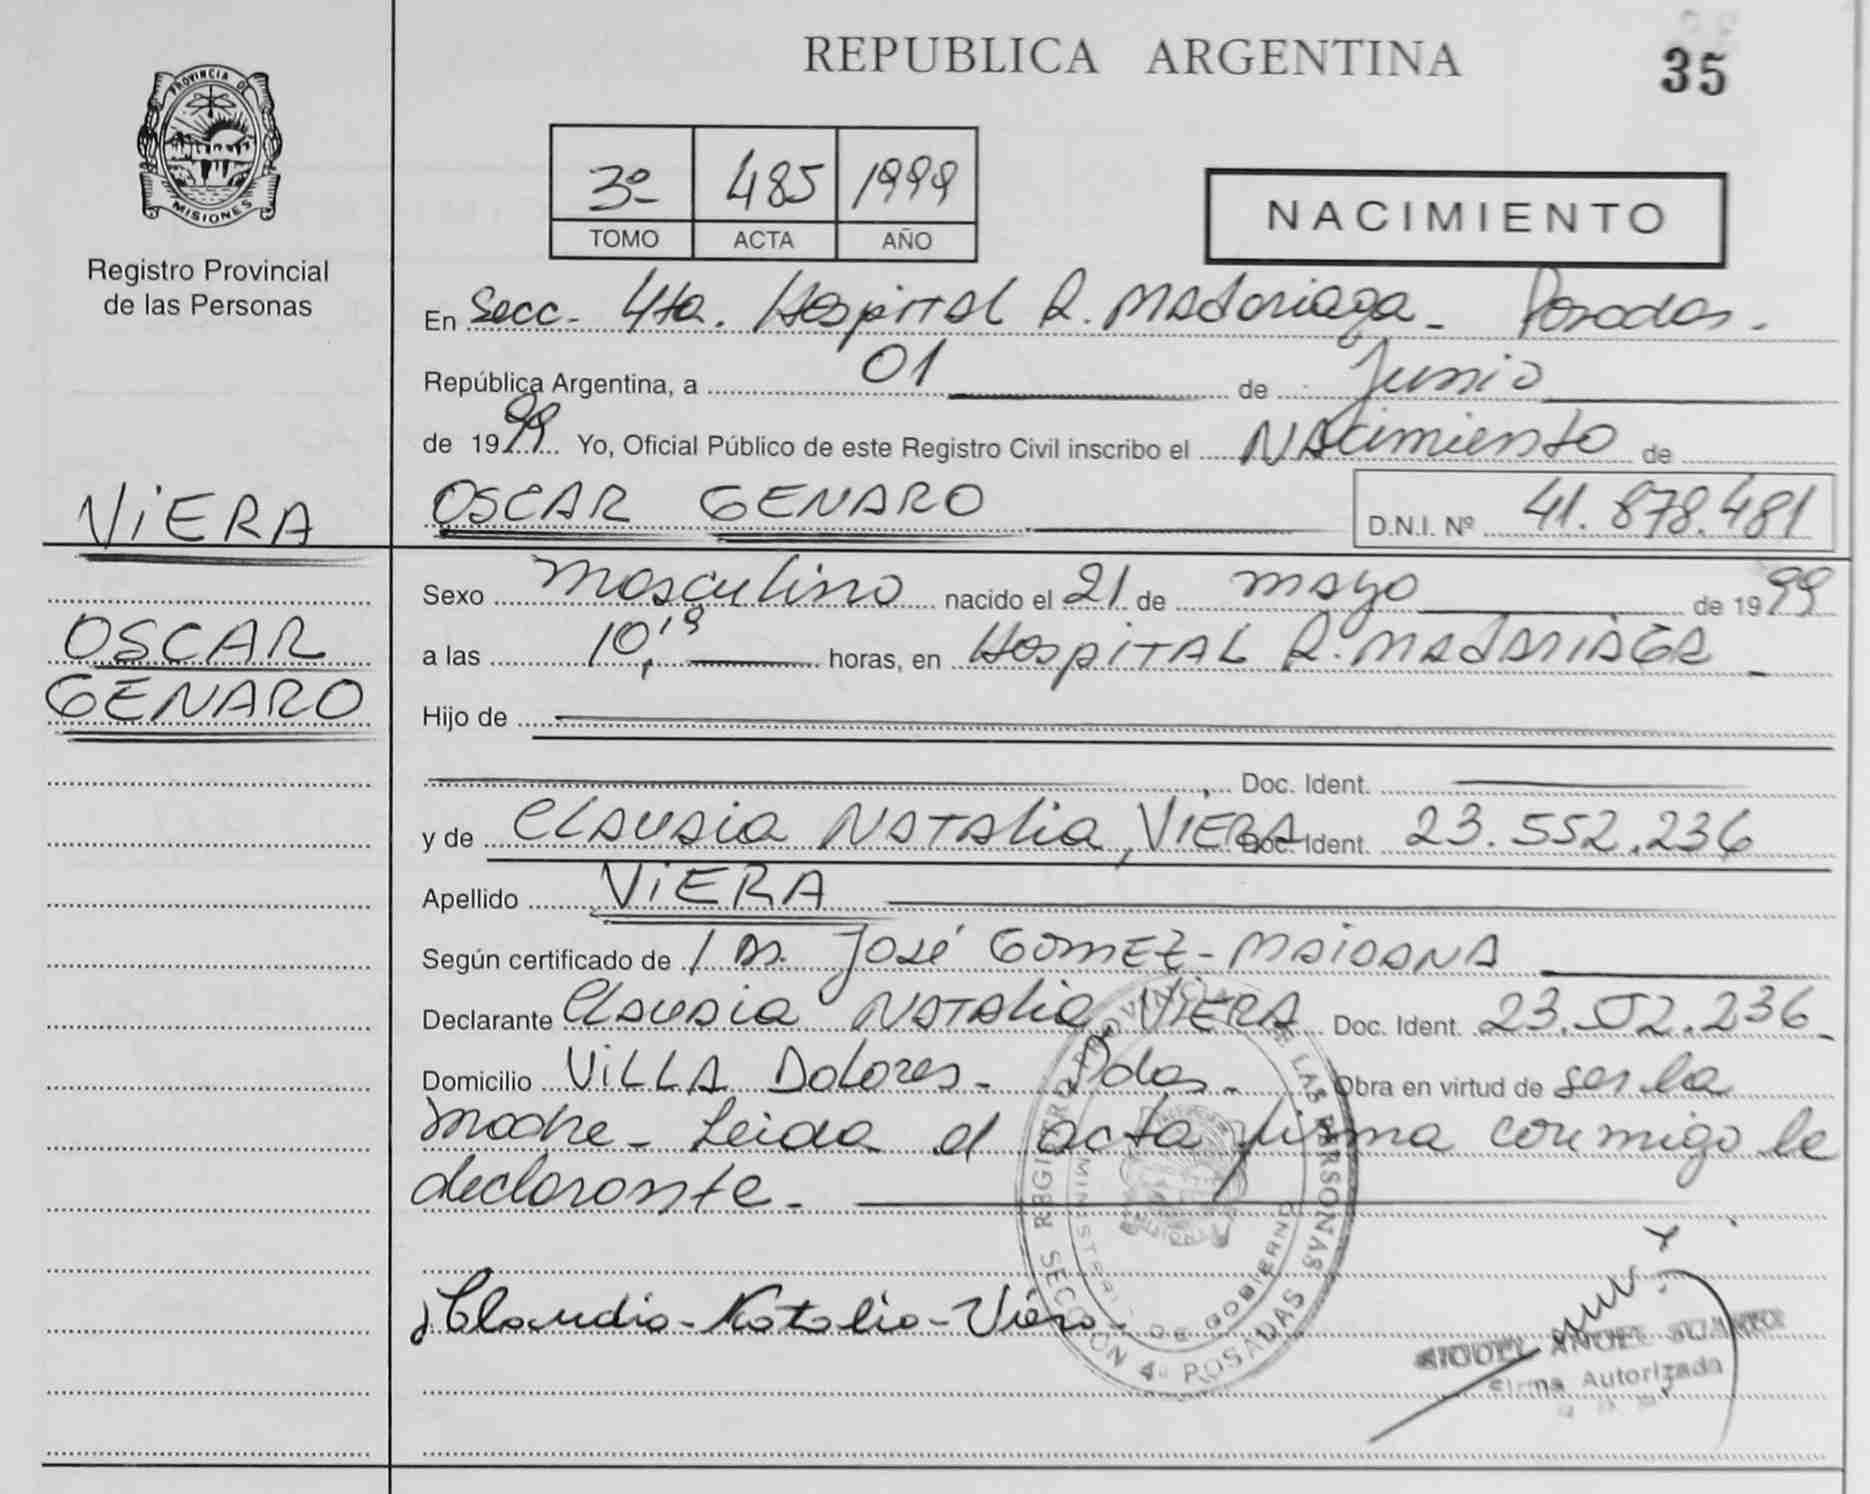 REPUBLICA ARGENTINA
35
PROVINCIA DE
MISIONES
Registro Provincial
de las Personas
3º 485 1999
TOMO ACTA AÑO
NACIMIENTO
En Secc. 4ta. Hospital R. Madariaga - Posadas.
República Argentina, a 01 de Junio
de 1999 Yo, Oficial Público de este Registro Civil inscribo el Nacimiento de
VIERA
OSCAR GENARO D.N.I. Nº 41.878.481
OSCAR
GENARO
Sexo Masculino nacido el 21 de mayo de 1999
a las 10, horas, en Hospital R. Madariaga
Hijo de
Doc. Ident.
y de Claudia Natalia, VIERA Doc. Ident. 23.552.236
Apellido VIERA
Según certificado de José GOMEZ - MAIDANA
Declarante Claudia Natalia, VIERA Doc. Ident. 23.552.236
Domicilio VILLA Dolores - Pdas. Obra en virtud de ser la
madre - Leida el acta firma conmigo la
declarante.
Claudia - Natalia - Viera
REGISTRO PROVINCIAL DE LAS PERSONAS
DE GOBIERNO
SECCION 4ª POSADAS
MIGUEL ANGEL
Firma Autorizada